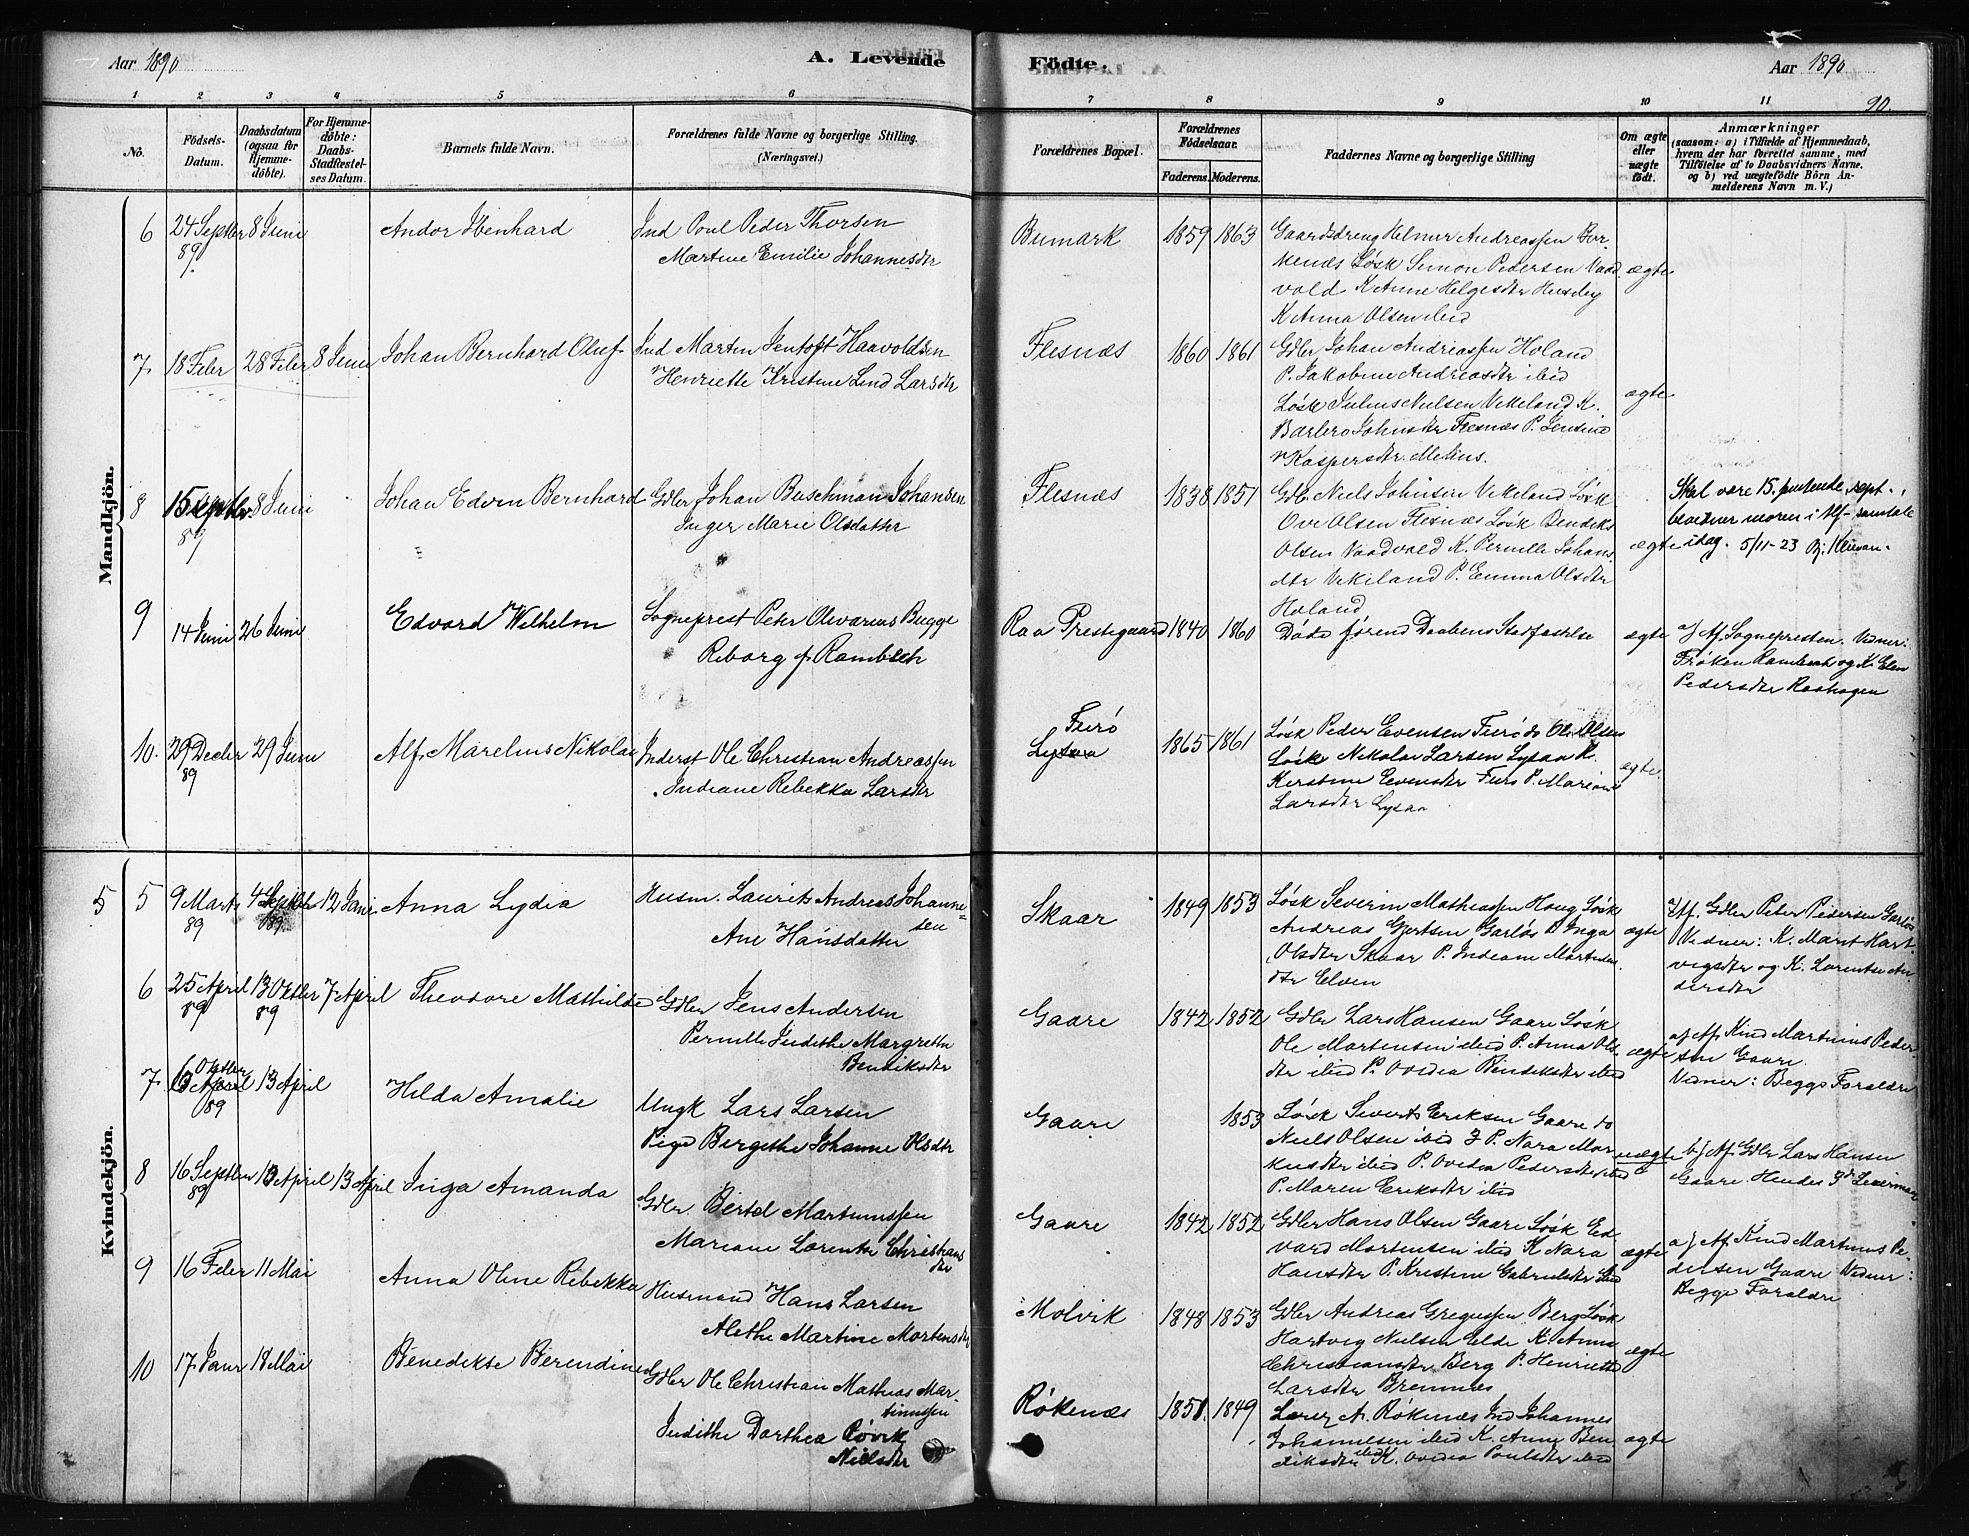 Aar 1890
A. Levende
Födte.
Aar 1890
90.
1 2 3 4 5 6 7 8 9 10 11
No.
Födsels-Datum.
Daabsdatum (ogsaa for Hjemme-döbte).
For Hjemme-döbte: Daabs-Stadfæstel-ses Datum.
Barnets fulde Navn.
Forældrenes fulde Navne og borgerlige Stilling.
(Næringsvei.)
Forældrenes Bopæl.
Forældrenes Födselsaar.
Faderens. Moderens.
Faddernes Navne og borgerlige Stilling
Om ægte eller uægte födt.
Anmærkninger
(saasom: a) i Tilfælde af Hjemmedaab,
hvem der har forrettet samme, med
Tilföielse af to Daabsvidners Navne,
og b) ved uægtefödte Börn An-
melderens Navn m. V.)
Mandkjön.
6 24 Septbr 89 8 Juni
Andor Ibenhard
Ind Poul Peder Thorsen
Martine Emilie Johannesdtr
Bumark 1859 1863
Gaardsdreng Helmer Andreassen Bor-
kenæs Løsk Simon Pedersen Vaad
vold K Anne Helgesdtr Husby
K Anna Olsen ibid
ægte
7. 18 Febr 28 Febr 8 Juni
Johan Bernhard Oluf
Ind Martin Jentoft Haavoldsen
Henriette Kristine Lind Larsdtr
Flesnæs 1860 1861
Gdbr Johan Andreassen Holand
P. Jakobine Andreasdtr ibid
Løsk Julius Nielsen Vikeland K.
Barbro Johnsdtr Flesnæs P. Jensine
Kaspersdtr Melius.
ægte
8 15 Septbr. 89 8 Juni
Johan Edvin Bernhard
Gdbr Johan Buschman Johansen
Inger Marie Olsdatter
Flesnæs 1838 1851
Gdb. Niels Johnsen Vikeland Løsk
Ove Olsen Flesnæs Løsk Bendiks
Olsen Vaadvold K. Pernille Johans
dtr Vikeland P. Emma Olsdtr
Holand
ægte
Skal være 15. femtende sept.,
bevidner moren i tlf-samtale
idag. 5/11-23
9 14 Juni 26 Juni
Edvard Wilhelm
Sogneprest Peter Olivarius Bugge
Riborg f. Rambech
Raa Prestegaard 1840 1860
Døde førend Daabens Stadfæstelse
ægte
a) Af Sognepresten. Vidner:
Frøken Rambech og K. Elen
Pedersdtr Raahagen
10. 29 Decbr 89 29 Juni
Alf Marelius Nikolai
Inderst Ole Christian Andreassen
Indiane Rebekka Larsdtr
Furö
Lysaa 1865 1861
Løsk Peder Evensen Furö do Ole Olsen
Løsk Nikolai Larsen Lysaa K.
Kirstine Evensdtr Furö P. Mariane
Larsdtr Lysaa
ægte.
Kvindekjön.
5
5 9 Marts 89 4 Septbr 89. 12 Jani
Anna Lydia
Husm. Laurits Andreas Johanne=
sen
Ane Hansdatter
Skaar 1849 1853
Løsk Severin Mathiassen Haug Løsk
Andreas Gjertsen Garløs P Inga
Olsdtr Skaar P. Indiane Martins
dtr Elven
ægte
a) Af. Gdbr Peter Pedersen Garløs
Vidner: K. Marit Hart
vigsdtr og K. Lorentse An
dersdtr
6 25 April 89 13 Oktbr 89 7 April
Theodore Mathilde
Gdbr Jens Andersen
Pernille Judithe Margrethe
Bendiksdtr
Gaare 1842 1852
Gdbr Lars Hansen Gaare Løsk
Ole Mortensen ibid P. Anna Ols
dtr ibid P. Ovidia Bendiksdtr ibid
ægte
a) Af. Kind Martinus Peder-
sen Gaare
Vidner: Begge Forældre
7. 6 Oktbr 13 April 89 13 April
Hilda Amalie
Ungk Lars Larsen
Pige Bergithe Johanne Olsdtr
Gaare 1853
Løsk Sivert Eriksen Gaare do
Niels Olsen ibid P. Nora Mar
kusdtr ibid P. Ovidia Pedersdtr ibid
P. Maren Eriksdtr ibid
uægte
b) Af Gdbr Lars Hansen
Gaare. Hendes 3die Leiermaal
8 16 Septbr 89 13 April 13 April
Inga Amanda
Gdbr. Bertel Martinussen
Mariane Lorentse Christians
dtr
Gaare 1842 1852
Gdbr Hans Olsen Gaare Løsk Ed
vard Mortensen ibid K Nora
Hansdtr P. Kristine Gabrielsdtr ibid
ægte
a) Af Kind Martinus Pe-
dersen Gaare Vidner:
Begge Forældre
9 16 Febr 11 Mai
Anna Oline Rebekka
Husmand Hans Larsen
Alethe Martine Mortensdtr
Molvik 1848 1853
Gdbr Andreas Gregussen Berg Løsk
Hartvig Nielsen Elde K. Anna
Christiansdtr Berg P. Henriette
Larsdtr Bremnæs
ægte
10 17 Janr 18 Mai
Benedikte Berendine
Gdbr Ole Christian Mathias Mar-
tinussen
Judithe Dorthea Rövik
Nielsdtr
Rökenæs 1851. 1849
A. Rökenæs Ind Johannes
Johannesen ibid K. Anne Ben
diksdtr ibid K. Ovidia Poulsdtr ibid
ægte